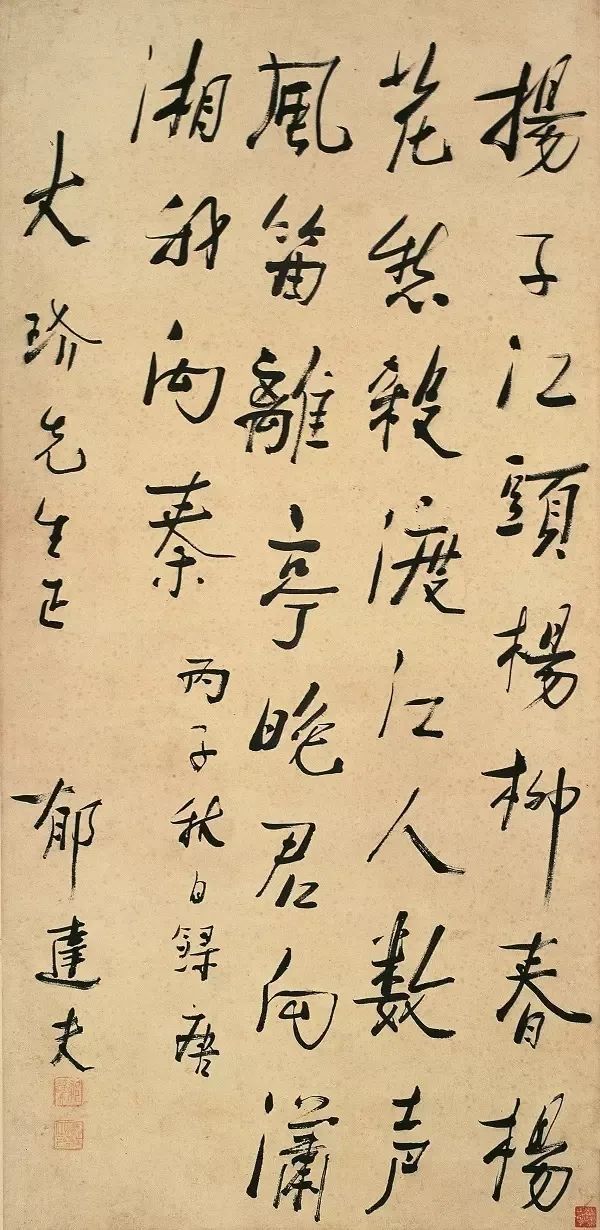 揚子江頭楊柳春楊
花愁殺渡江人数声
風笛離亭晚君向瀟
湘我向秦
丙子秋日錄唐
玠先生正
郁達夫